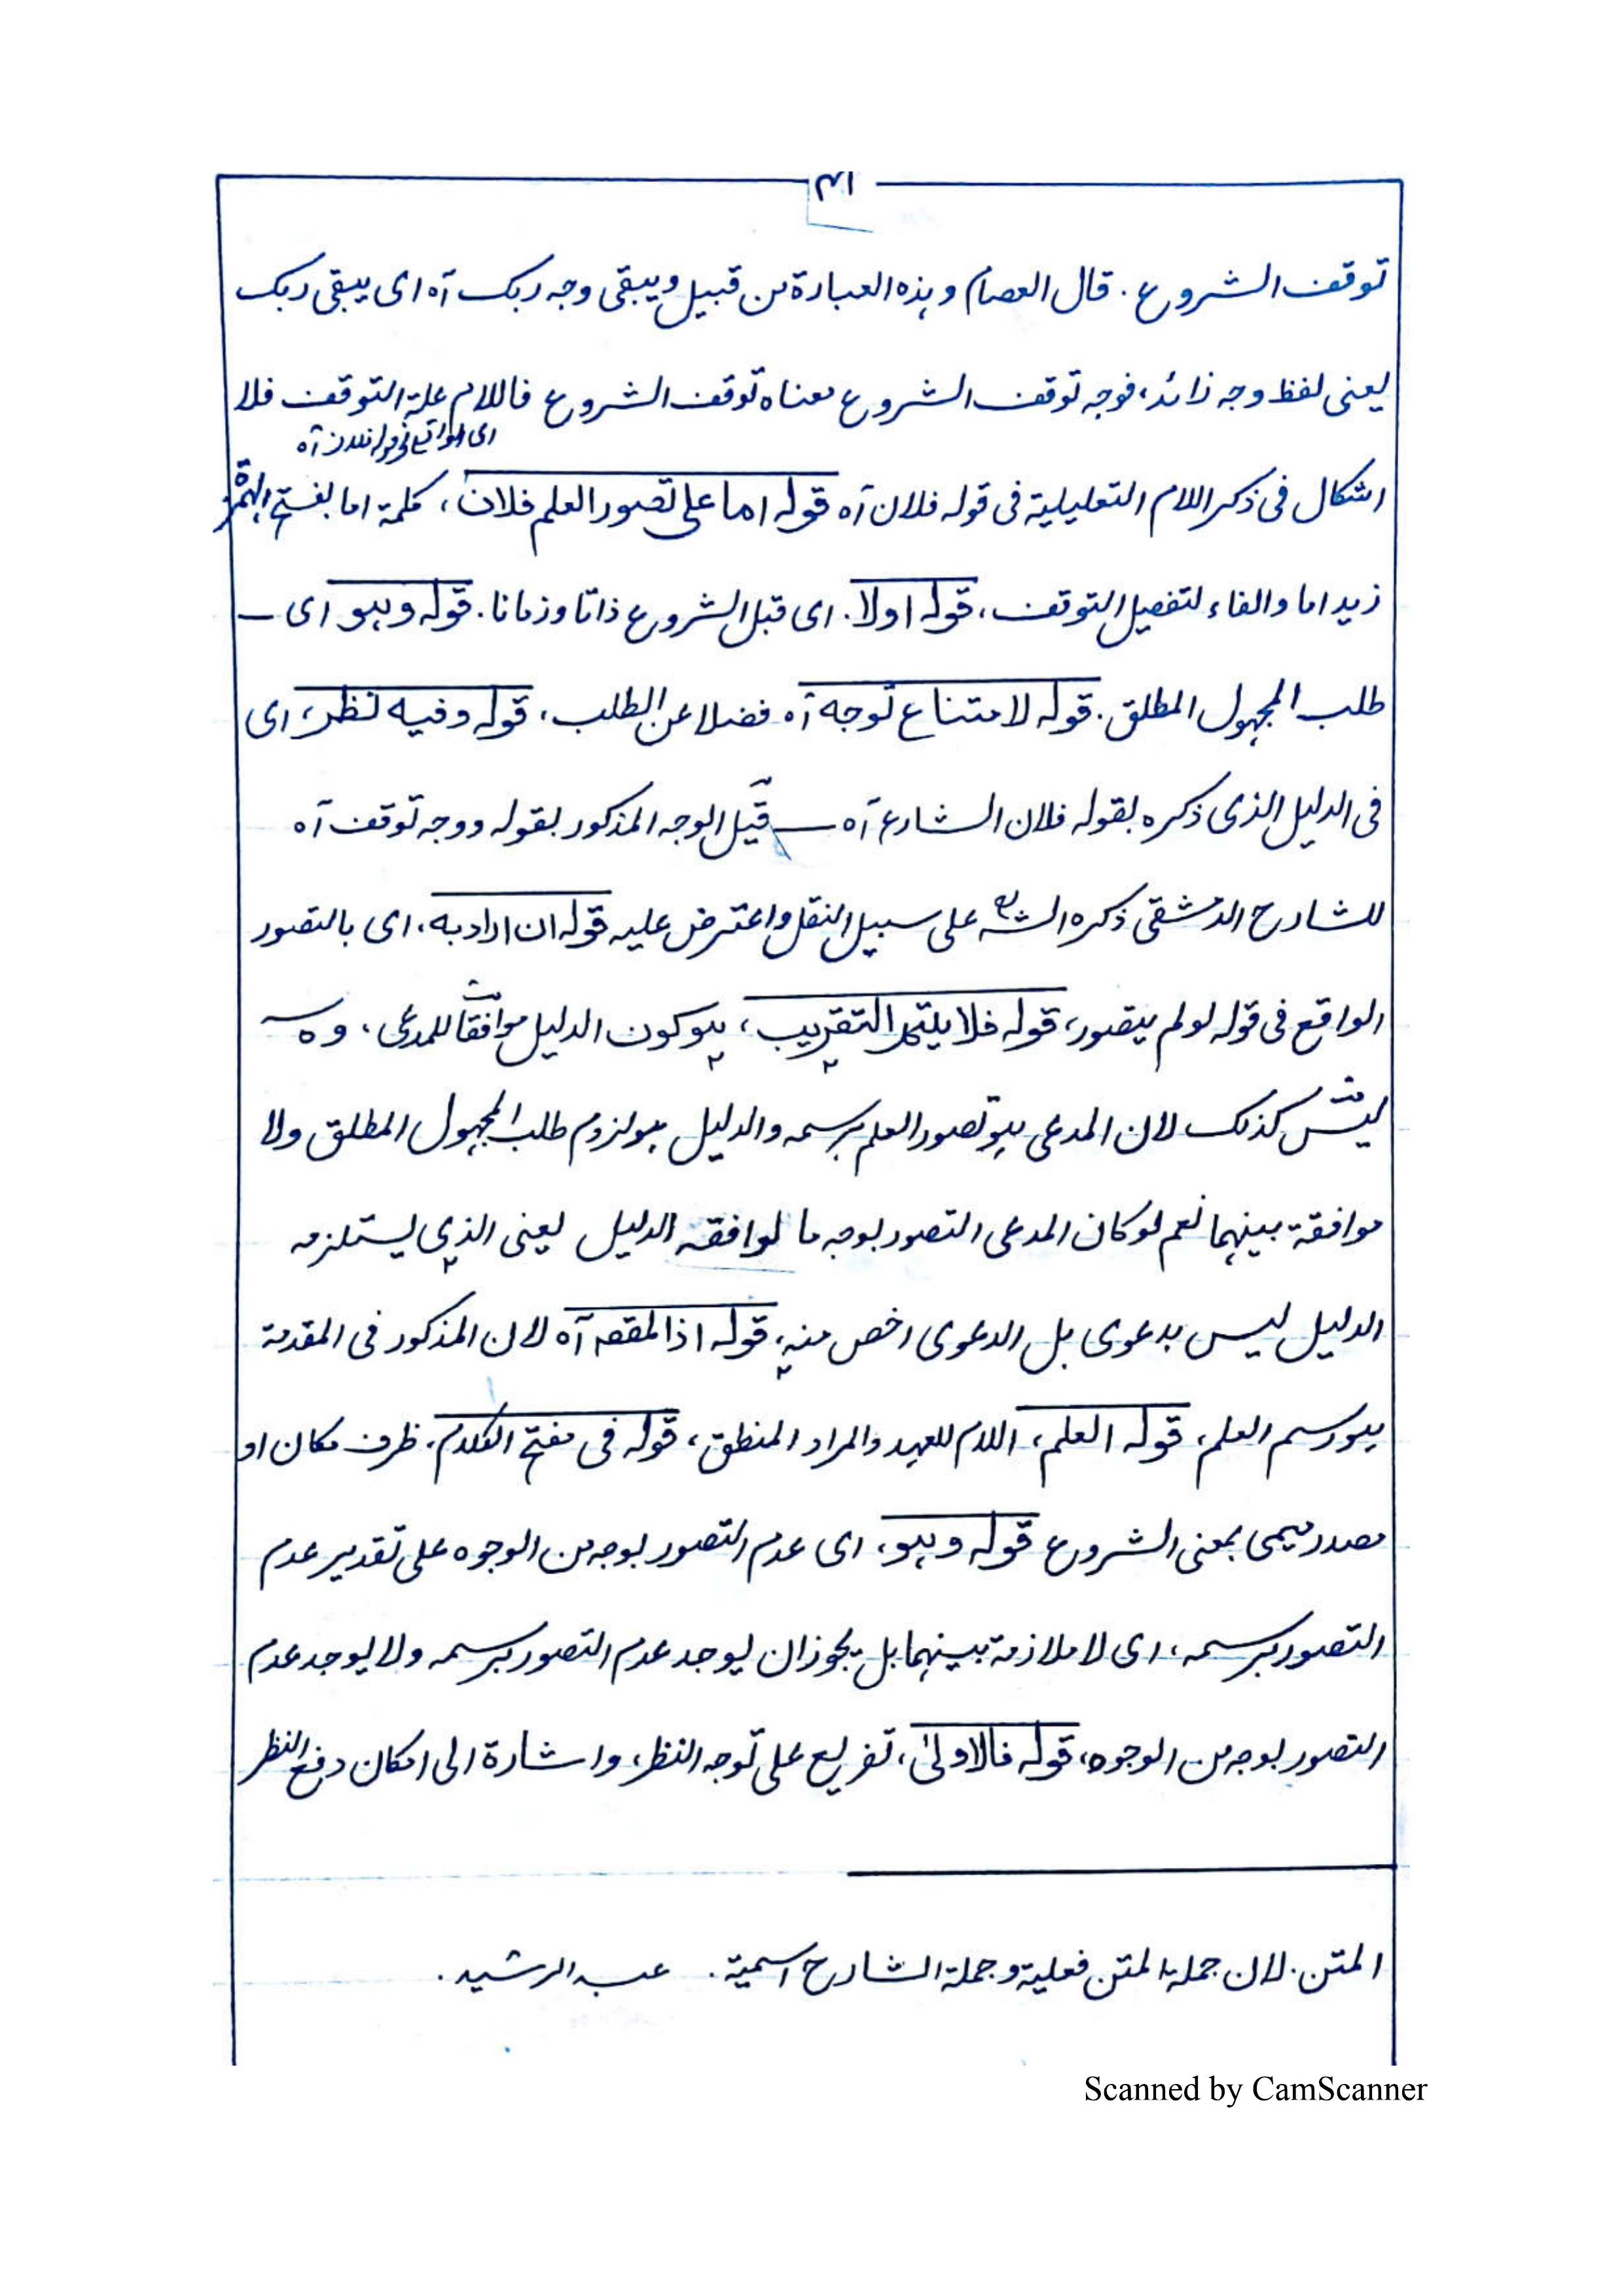 ٣١
توقف الشروع. قال العصام وهذه العبارة من قبيل ويبقى وجه ربك آه اى يبقى ربك
يعنى لفظ وجه زائد، فوجه توقف الشروع معناه توقف الشروع فاللام علة التوقف فلا
اى الواقع فى قوله فلان آه
اشكال فى ذكر اللام التعليلية فى قوله فلان آه قوله اما على تصور العلم فلان، كلمة اما بفتح الهمزة
زيد اما والفاء لتفصيل التوقف، قوله اولا. اى قبل الشروع ذاتا وزمانا. قوله وهو اى ــ
طلب المجهول المطلق. قوله لامتناع توجه آه فضلا عن الطلب، قوله وفيه نظر، اى
فى الدليل الذى ذكره بقوله فلان الشارع آه ــ قيل الوجه المذكور بقوله ووجه توقف آه
للشارح الدمشقى ذكره الشه على سبيل النقل واعترض عليه قوله ان اراد به، اى بالتصور
الواقع فى قوله لولم يتصور، قوله فلا يتم التقريب، هو كون الدليل موافقا للمدعى، وه
ليس كذلك لان المدعى هو تصور العلم برسمه والدليل هو لزوم طلب المجهول المطلق ولا
موافقة بينهما نعم لو كان المدعى التصور بوجه ما لوافقه الدليل يعنى الذى يستلزمه
الدليل ليس بدعوى بل الدعوى اخص منه، قوله اذ المقصه آه لان المذكور فى المقدمة
هو رسم العلم، قوله العلم، اللام للعهد والمراد المنطق، قوله فى مفتح الكلام، ظرف مكان او
مصدر ميمى بمعنى الشروع قوله وهو، اى عدم التصور بوجه من الوجوه على تقدير عدم
التصور برسمه، اى لا ملازمة بينهما بل يجوز ان يوجد عدم التصور برسمه ولا يوجد عدم
التصور بوجه من الوجوه، قوله فالاولىٰ، تفريع على توجه النظر، واشارة الى امكان دفع النظر
المتن. لان جملة المتن فعلية وجملة الشارح اسمية. عبد الرشيد.
Scanned by CamScanner